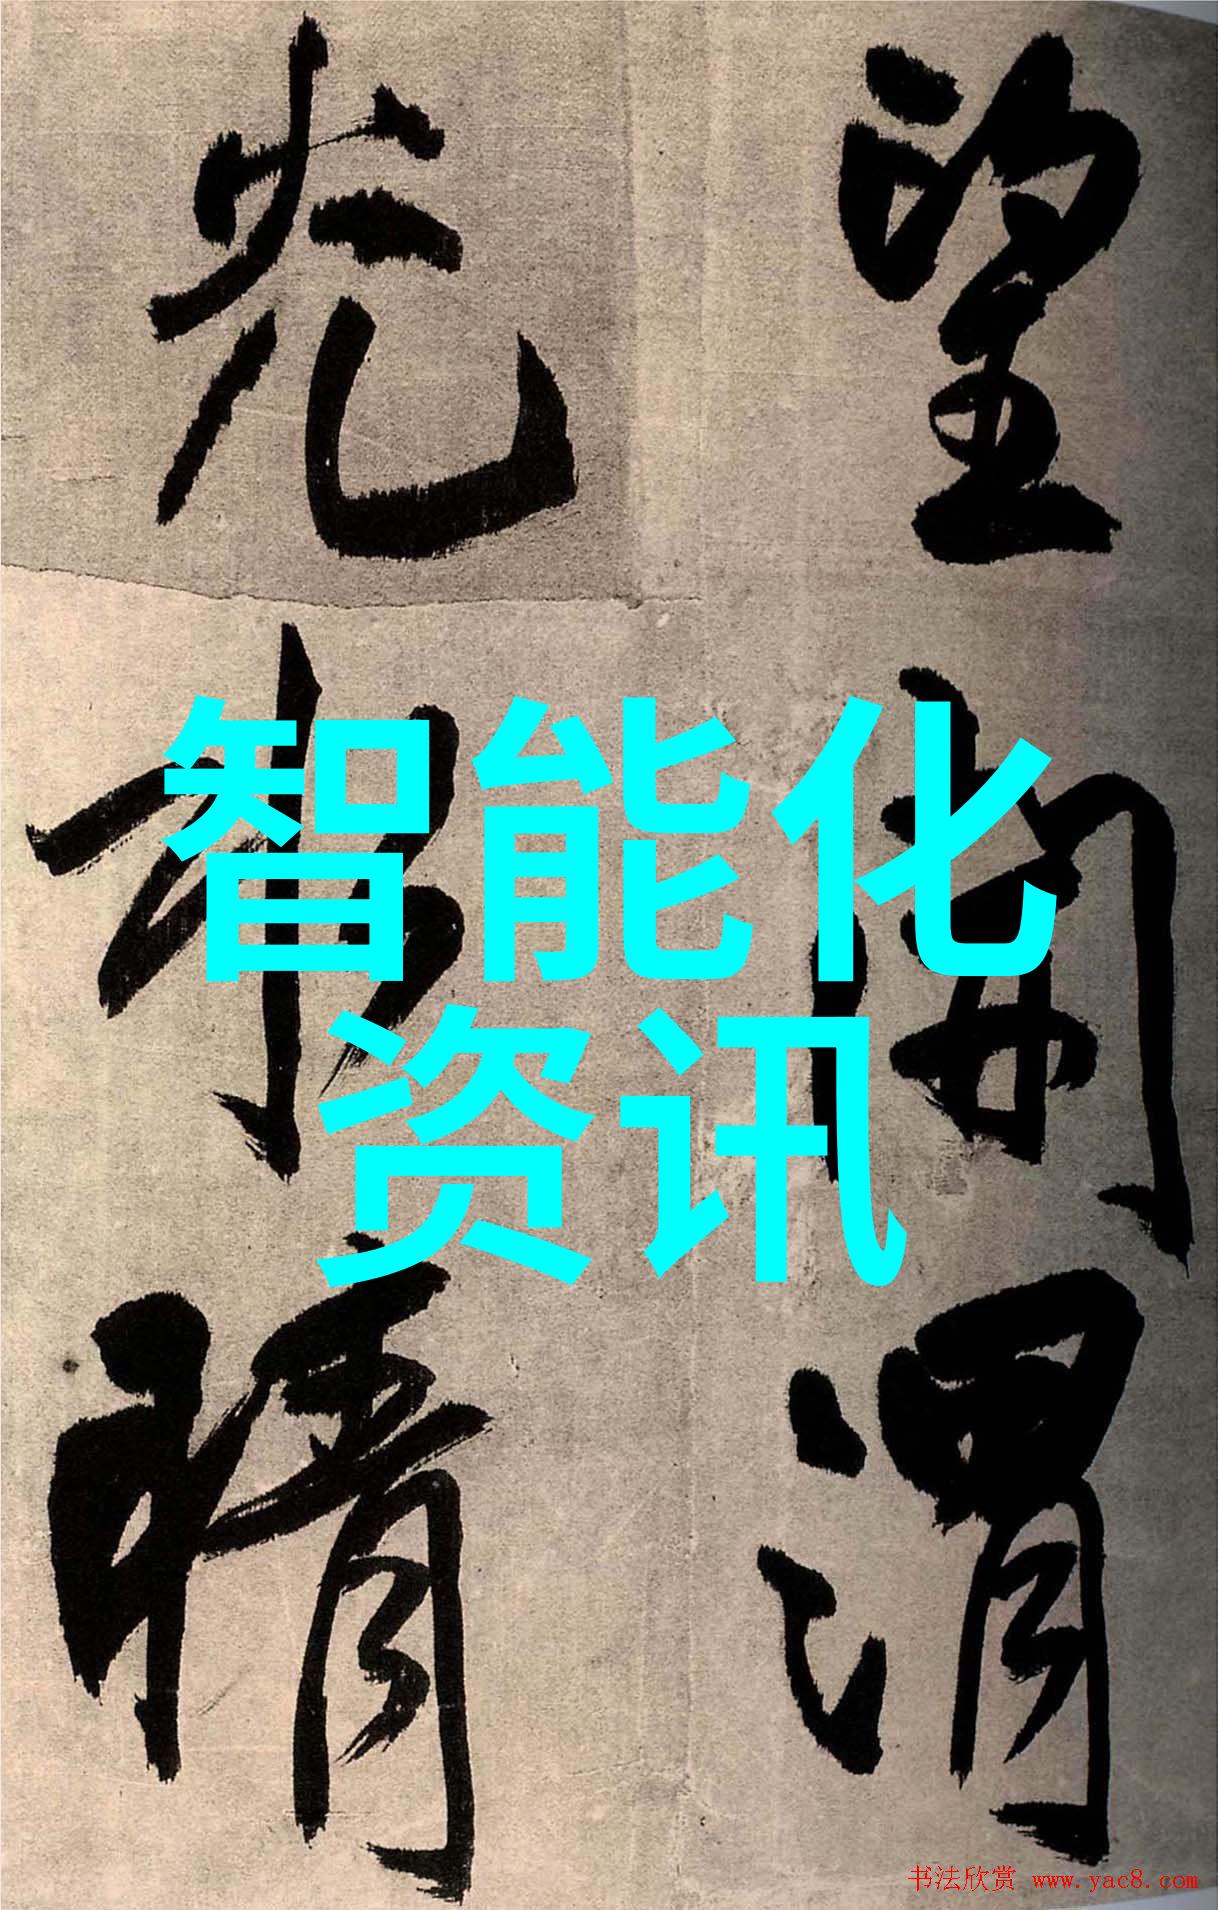 望開渭
光晴
智能化
资讯
书法欣赏 www.yac8.com